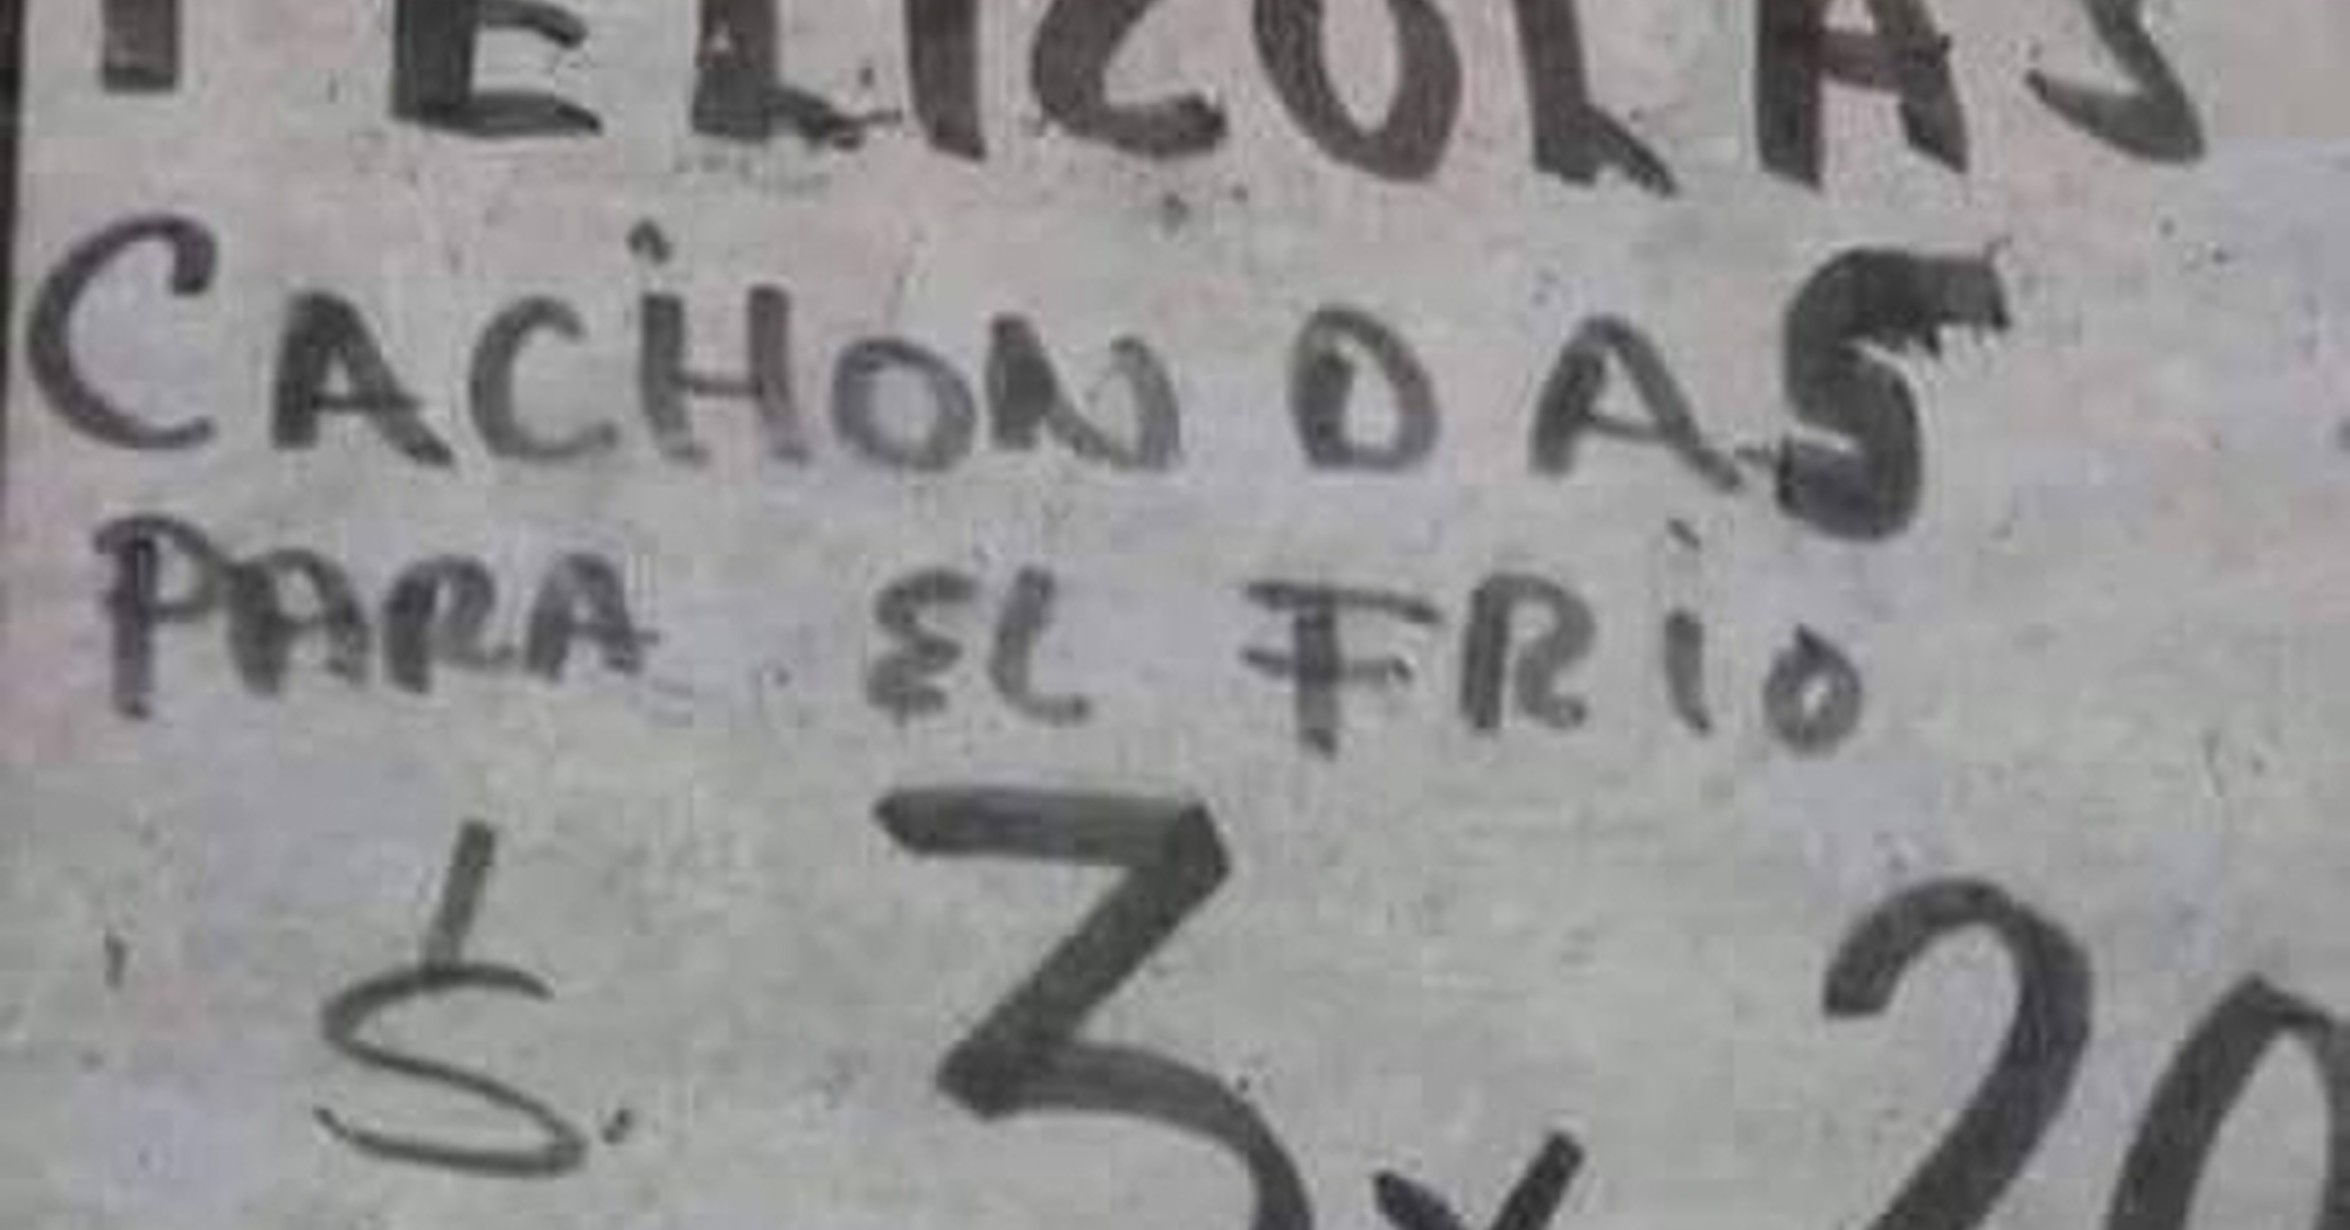 PELICULAS
CACHONDAS
PARA EL FRiO
$. 3x 20